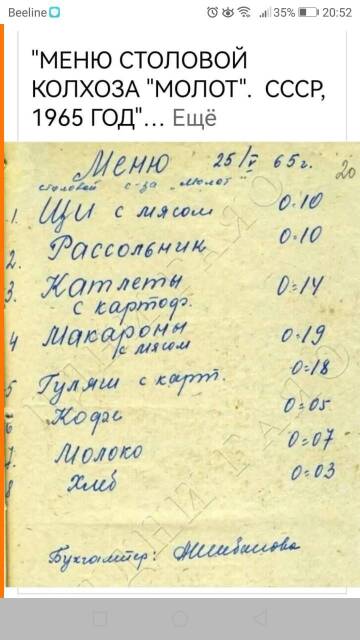 Beeline 35% 20:52
"МЕНЮ СТОЛОВОЙ
КОЛХОЗА "МОЛОТ". СССР,
1965 ГОД"... Ещё
Меню 25/V 65 г. 20
столовой с-за "Молот"
1. Щи с мясом 0-10
2. Рассольник 0=10
3. Катлеты
с картоф. 0=14
4 Макароны
с мясом 0=19
5 Гуляш с карт. 0=18
6 Кофе 0=05
7. Молоко 0=07
8 Хлеб 0=03
Бухгалтер: